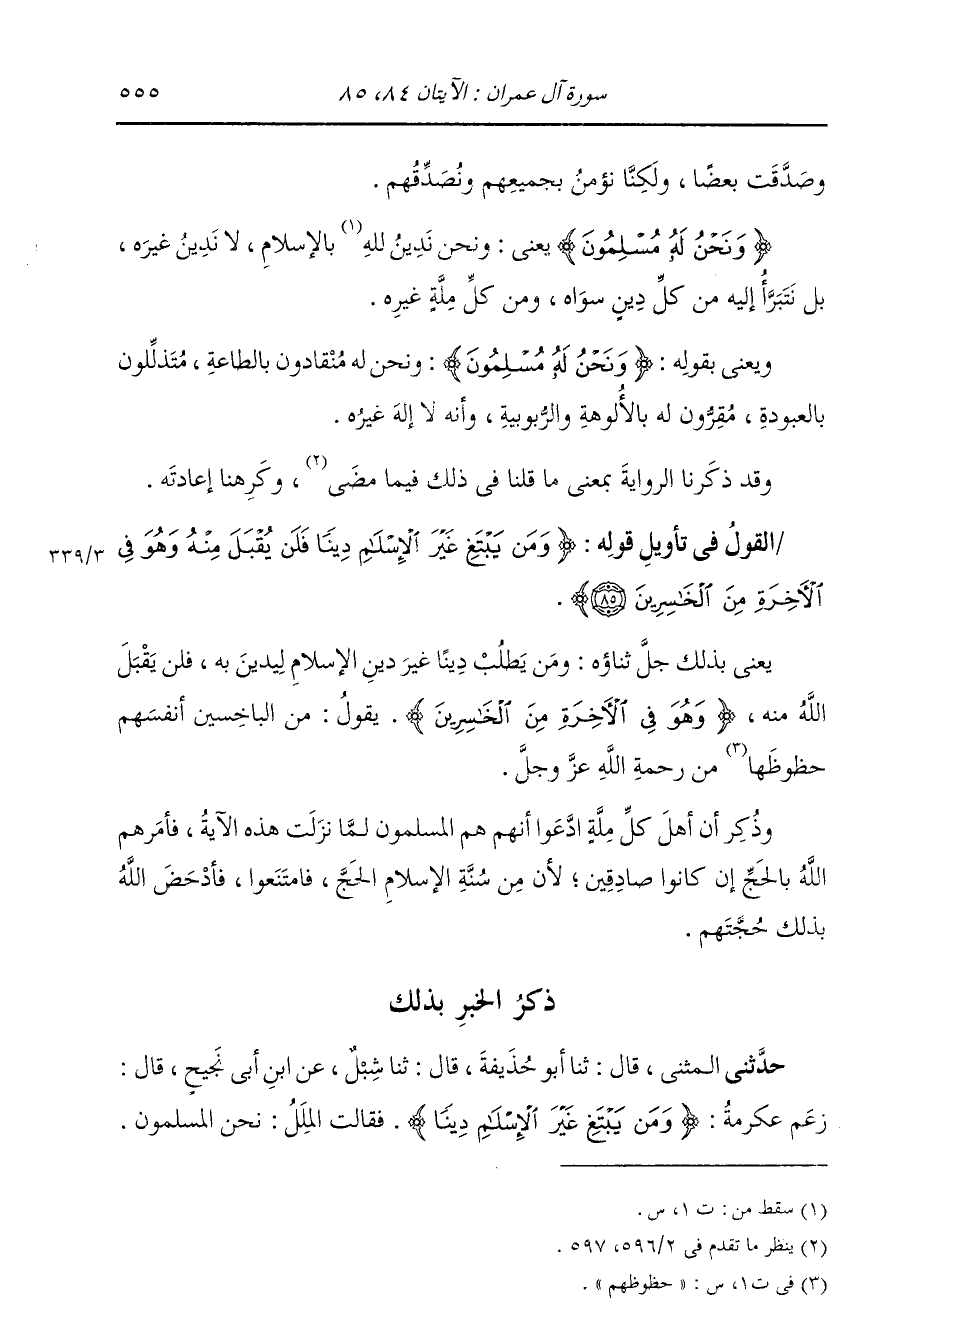 سورة آل عمران : الآيتان ٨٤، ٨٥ ٥٥٥
وصَدَّقَت بعضًا ، ولَكِنَّا نؤمنُ بجميعِهم ونُصَدِّقُهم .
﴿ وَنَحْنُ لَهُ مُسْلِمُونَ ﴾ يعنى : ونحن نَدِينُ للهِ(١) بالإسلامِ ، لا نَدِينُ غيرَه ،
بل نَتَبَرَّأُ إليه من كلِّ دِينٍ سوَاه ، ومن كلِّ مِلَّةٍ غيرِه .
ويعنى بقولِه : ﴿ وَنَحْنُ لَهُ مُسْلِمُونَ ﴾ : ونحن له مُنْقادون بالطاعةِ ، مُتَذلِّلون
بالعبودةِ ، مُقِرُّون له بالأُلوهةِ والرُّبوبيةِ ، وأنه لا إلهَ غيرُه .
وقد ذكَرنا الروايةَ بمعنى ما قلنا فى ذلك فيما مضَى(٢) ، وكَرِهنا إعادتَه .
/القولُ فى تأويلِ قولِه : ﴿ وَمَن يَبْتَغِ غَيْرَ ٱلْإِسْلَٰمِ دِينًا فَلَن يُقْبَلَ مِنْهُ وَهُوَ فِى ٣٣٩/٣
ٱلْأَخِرَةِ مِنَ ٱلْخَٰسِرِينَ ٨٥ ﴾ .
يعنى بذلك جلَّ ثناؤه : ومَن يَطلُبْ دِينًا غيرَ دينِ الإسلامِ لِيدينَ به ، فلن يَقْبَلَ
اللَّهُ منه ، ﴿ وَهُوَ فِى ٱلْأَخِرَةِ مِنَ ٱلْخَٰسِرِينَ ﴾ . يقولُ : من الباخِسين أنفسَهم
حظوظَها(٣) من رحمةِ اللَّهِ عزَّ وجلَّ .
وذُكِر أن أهلَ كلِّ مِلَّةٍ ادَّعَوا أنهم هم المسلمون لـمَّا نزَلَت هذه الآيةُ ، فأمَرهم
اللَّهُ بالحَجِّ إن كانوا صادِقِين ؛ لأن مِن سُنَّةِ الإسلامِ الحَجَّ ، فامتَنَعوا ، فأدْحَضَ اللَّهُ
بذلك حُجَّتَهم .
ذكرُ الخبرِ بذلك
حدَّثنى المثنى ، قال : ثنا أبو حُذَيفةَ ، قال : ثنا شِبْلٌ ، عن ابنِ أبى نَجيحٍ ، قال :
زعَم عكرمةُ : ﴿ وَمَن يَبْتَغِ غَيْرَ ٱلْإِسْلَٰمِ دِينًا ﴾ . فقالت المِلَلُ : نحن المسلمون .
(١) سقط من : ت ١، س .
(٢) ينظر ما تقدم فى ٥٩٦/٢، ٥٩٧ .
(٣) فى ت١، س : « حظوظهم » .